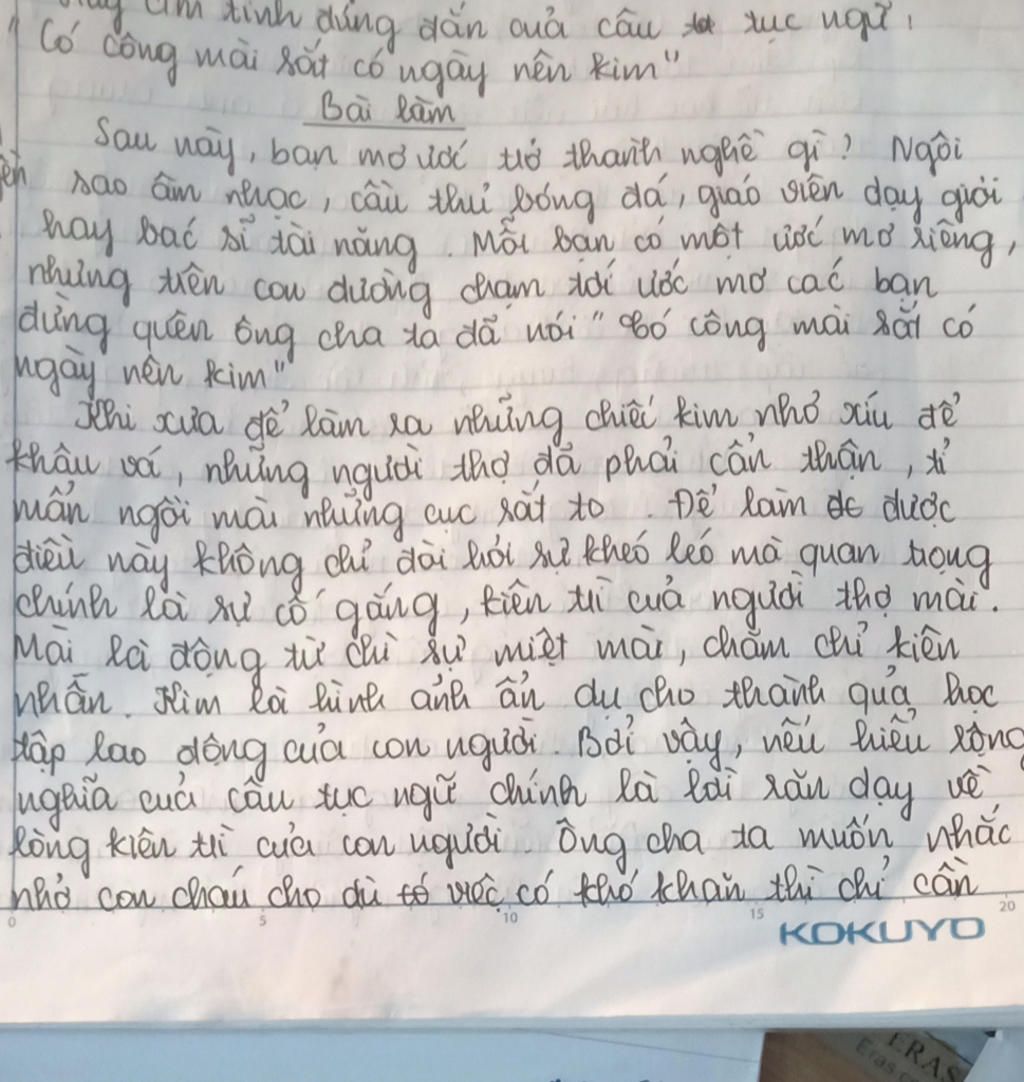 tính đúng đắn của câu tục ngữ:
"Có công mài sắt có ngày nên kim"
Bài làm
Sau này, bạn mơ ước trở thành nghề gì? Ngôi
sao âm nhạc, cầu thủ bóng đá, giáo viên dạy giỏi
hay bác sĩ tài năng. Mỗi bạn có một ước mơ riêng,
nhưng trên con đường chạm tới ước mơ các bạn
đừng quên ông cha ta đã nói "Có công mài sắt có
ngày nên kim"
Khi xưa để làm ra những chiếc kim nhỏ xíu để
khâu vá, những người thợ đã phải cẩn thận, tỉ
mẩn ngồi mài những cục sắt to. Để làm được
điều này không chỉ đòi hỏi sự khéo léo mà quan trọng
chính là sự cố gắng, kiên trì của người thợ mài.
Mài là động từ chỉ sự miệt mài, chăm chỉ kiên
nhẫn. Kim là hình ảnh ẩn dụ cho thành quả học
tập lao động của con người. Bởi vậy, nếu hiểu rộng
nghĩa của câu tục ngữ chính là lời răn dạy về
lòng kiên trì của con người. Ông cha ta muốn nhắc
nhở con cháu cho dù việc có khó khăn thì chỉ cần
0 5 10 15 20
KOKUYO
ERAS